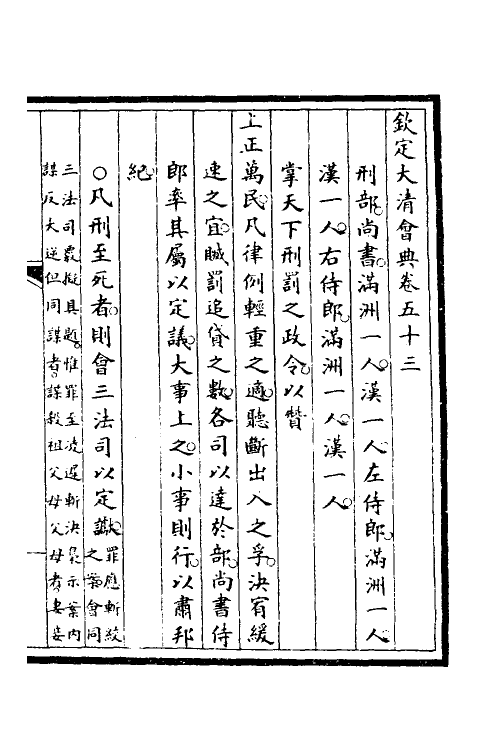 欽定大清會典卷五十三
刑部尚書滿洲一人漢一人左侍郎滿洲一人
漢一人右侍郎滿洲一人漢一人
掌天下刑罰之政令以贊
上正萬民凡律例輕重之適聽斷出入之孚決宥緩
速之宜贓罰追貸之數各司以達於部尚書侍
郎率其屬以定議大事上之小事則行以肅邦
紀
○凡刑至死者則會三法司以定讞罪應斬絞
之案會同
三法司覈擬具題惟罪至凌遲斬決梟示案內
謀反大逆但同謀者謀殺祖父母父母者妻妾